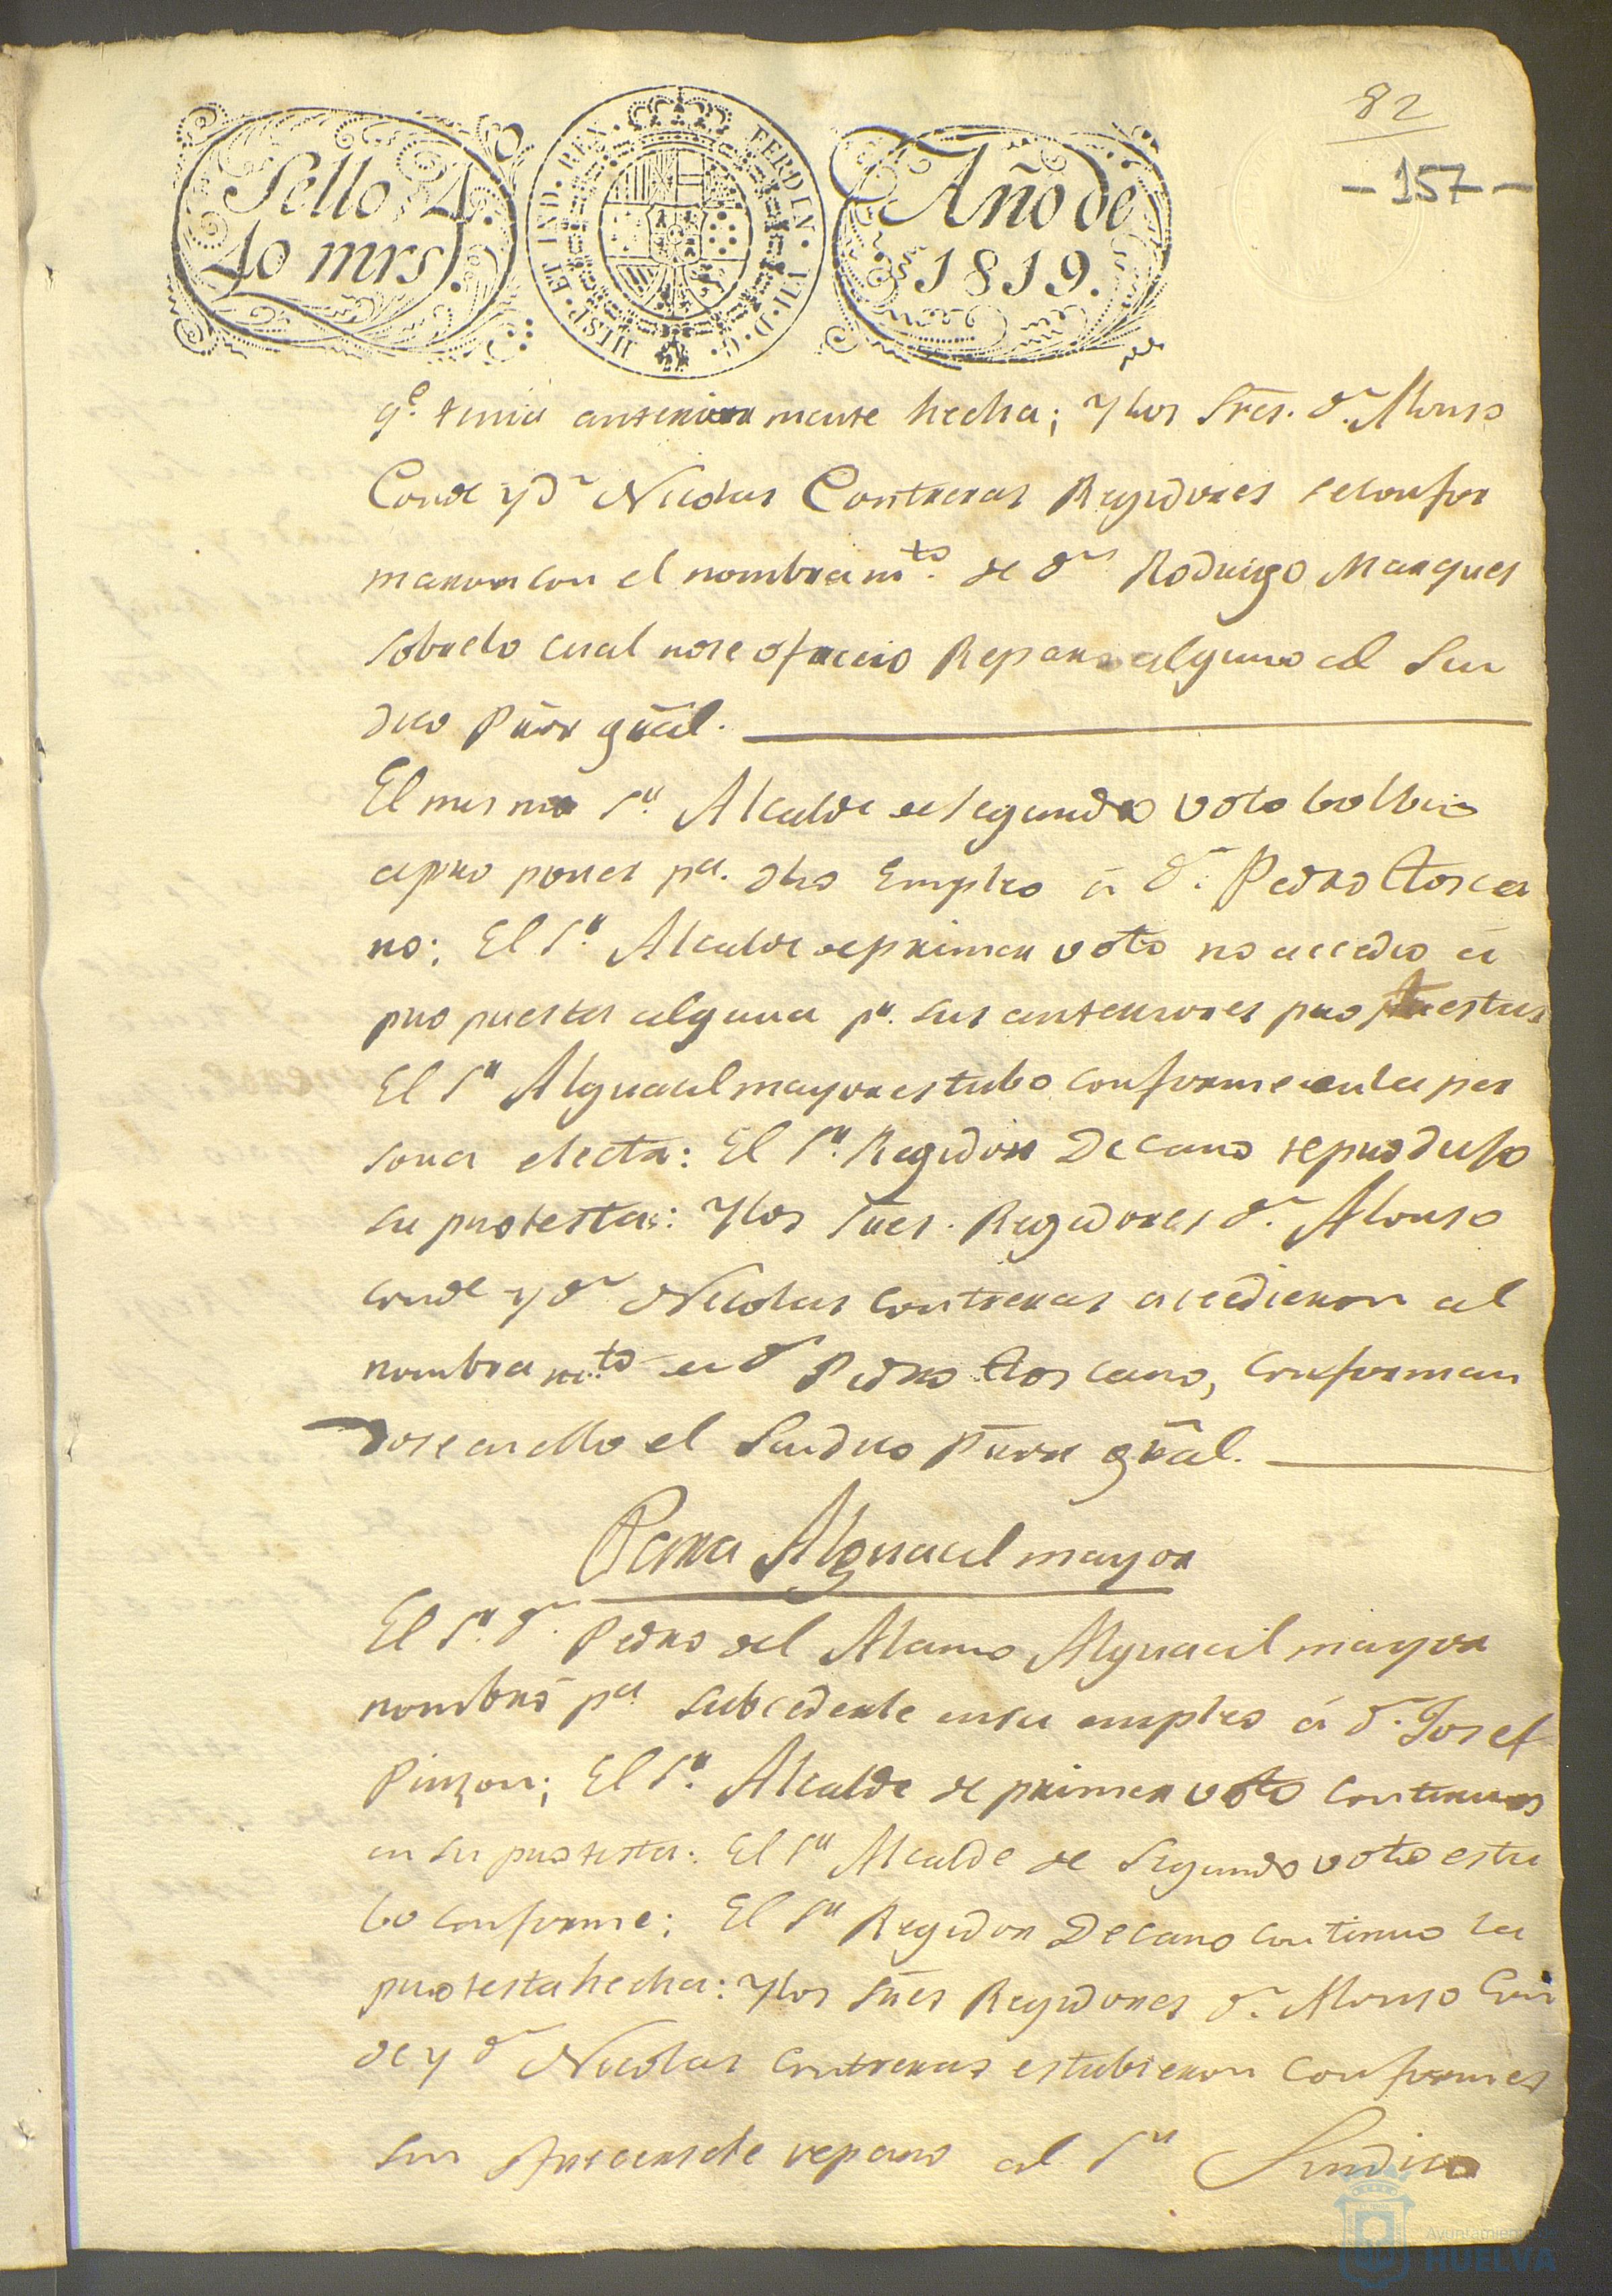 82
-157-
Sello 4.º
40 mrs.
HISP. ET IND. REX. FERDIN. VII. D. G.
Año de
1819.
q.e tenia anteriormente hecha; y los Sres. d.n Alonso
Conde y D.n Nicolas Contreras Regidores se confor
maron con el nombram.to de d.n Rodrigo Marques
sobre lo cual no se ofrecio Reparo alguno al Sin
dico Prör gräl.
El mismo S.r Alcalde de segundo voto bolbio
a proponer p.a dho Empleo á d.n Pedro Tosca
no; El S.r Alcalde de primer voto no accedio á
propuesta alguna p.r sus anteriores protestas
El S.r Alguacil mayor estubo conforme en la per
sona electa: El S.r Regidor Decano reprodujo
su protesta: Y los Sres. Regidores d.n Alonso
Conde y d.n Nicolas Contreras accedieron al
nombram.to en d.n Pedro Toscano, conforman
dose en ello el Sindico Prör gräl.
Para Alguacil mayor
El S.r d.n Pedro del Alamo Alguacil mayor
nombró p.a subcederle en su empleo á d.n Josef
Pinzon; El S.r Alcalde de primer voto continuó
en su protesta: El S.r Alcalde de Segundo voto estu
bo conforme; El S.r Regidor Decano continuó la
protesta hecha: Y los Sres Regidores d.n Alonso Con
de y d.n Nicolas Contreras estubieron conformes
sin ofrecersele reparo al S.r Sindico
Ayuntamiento
HUELVA